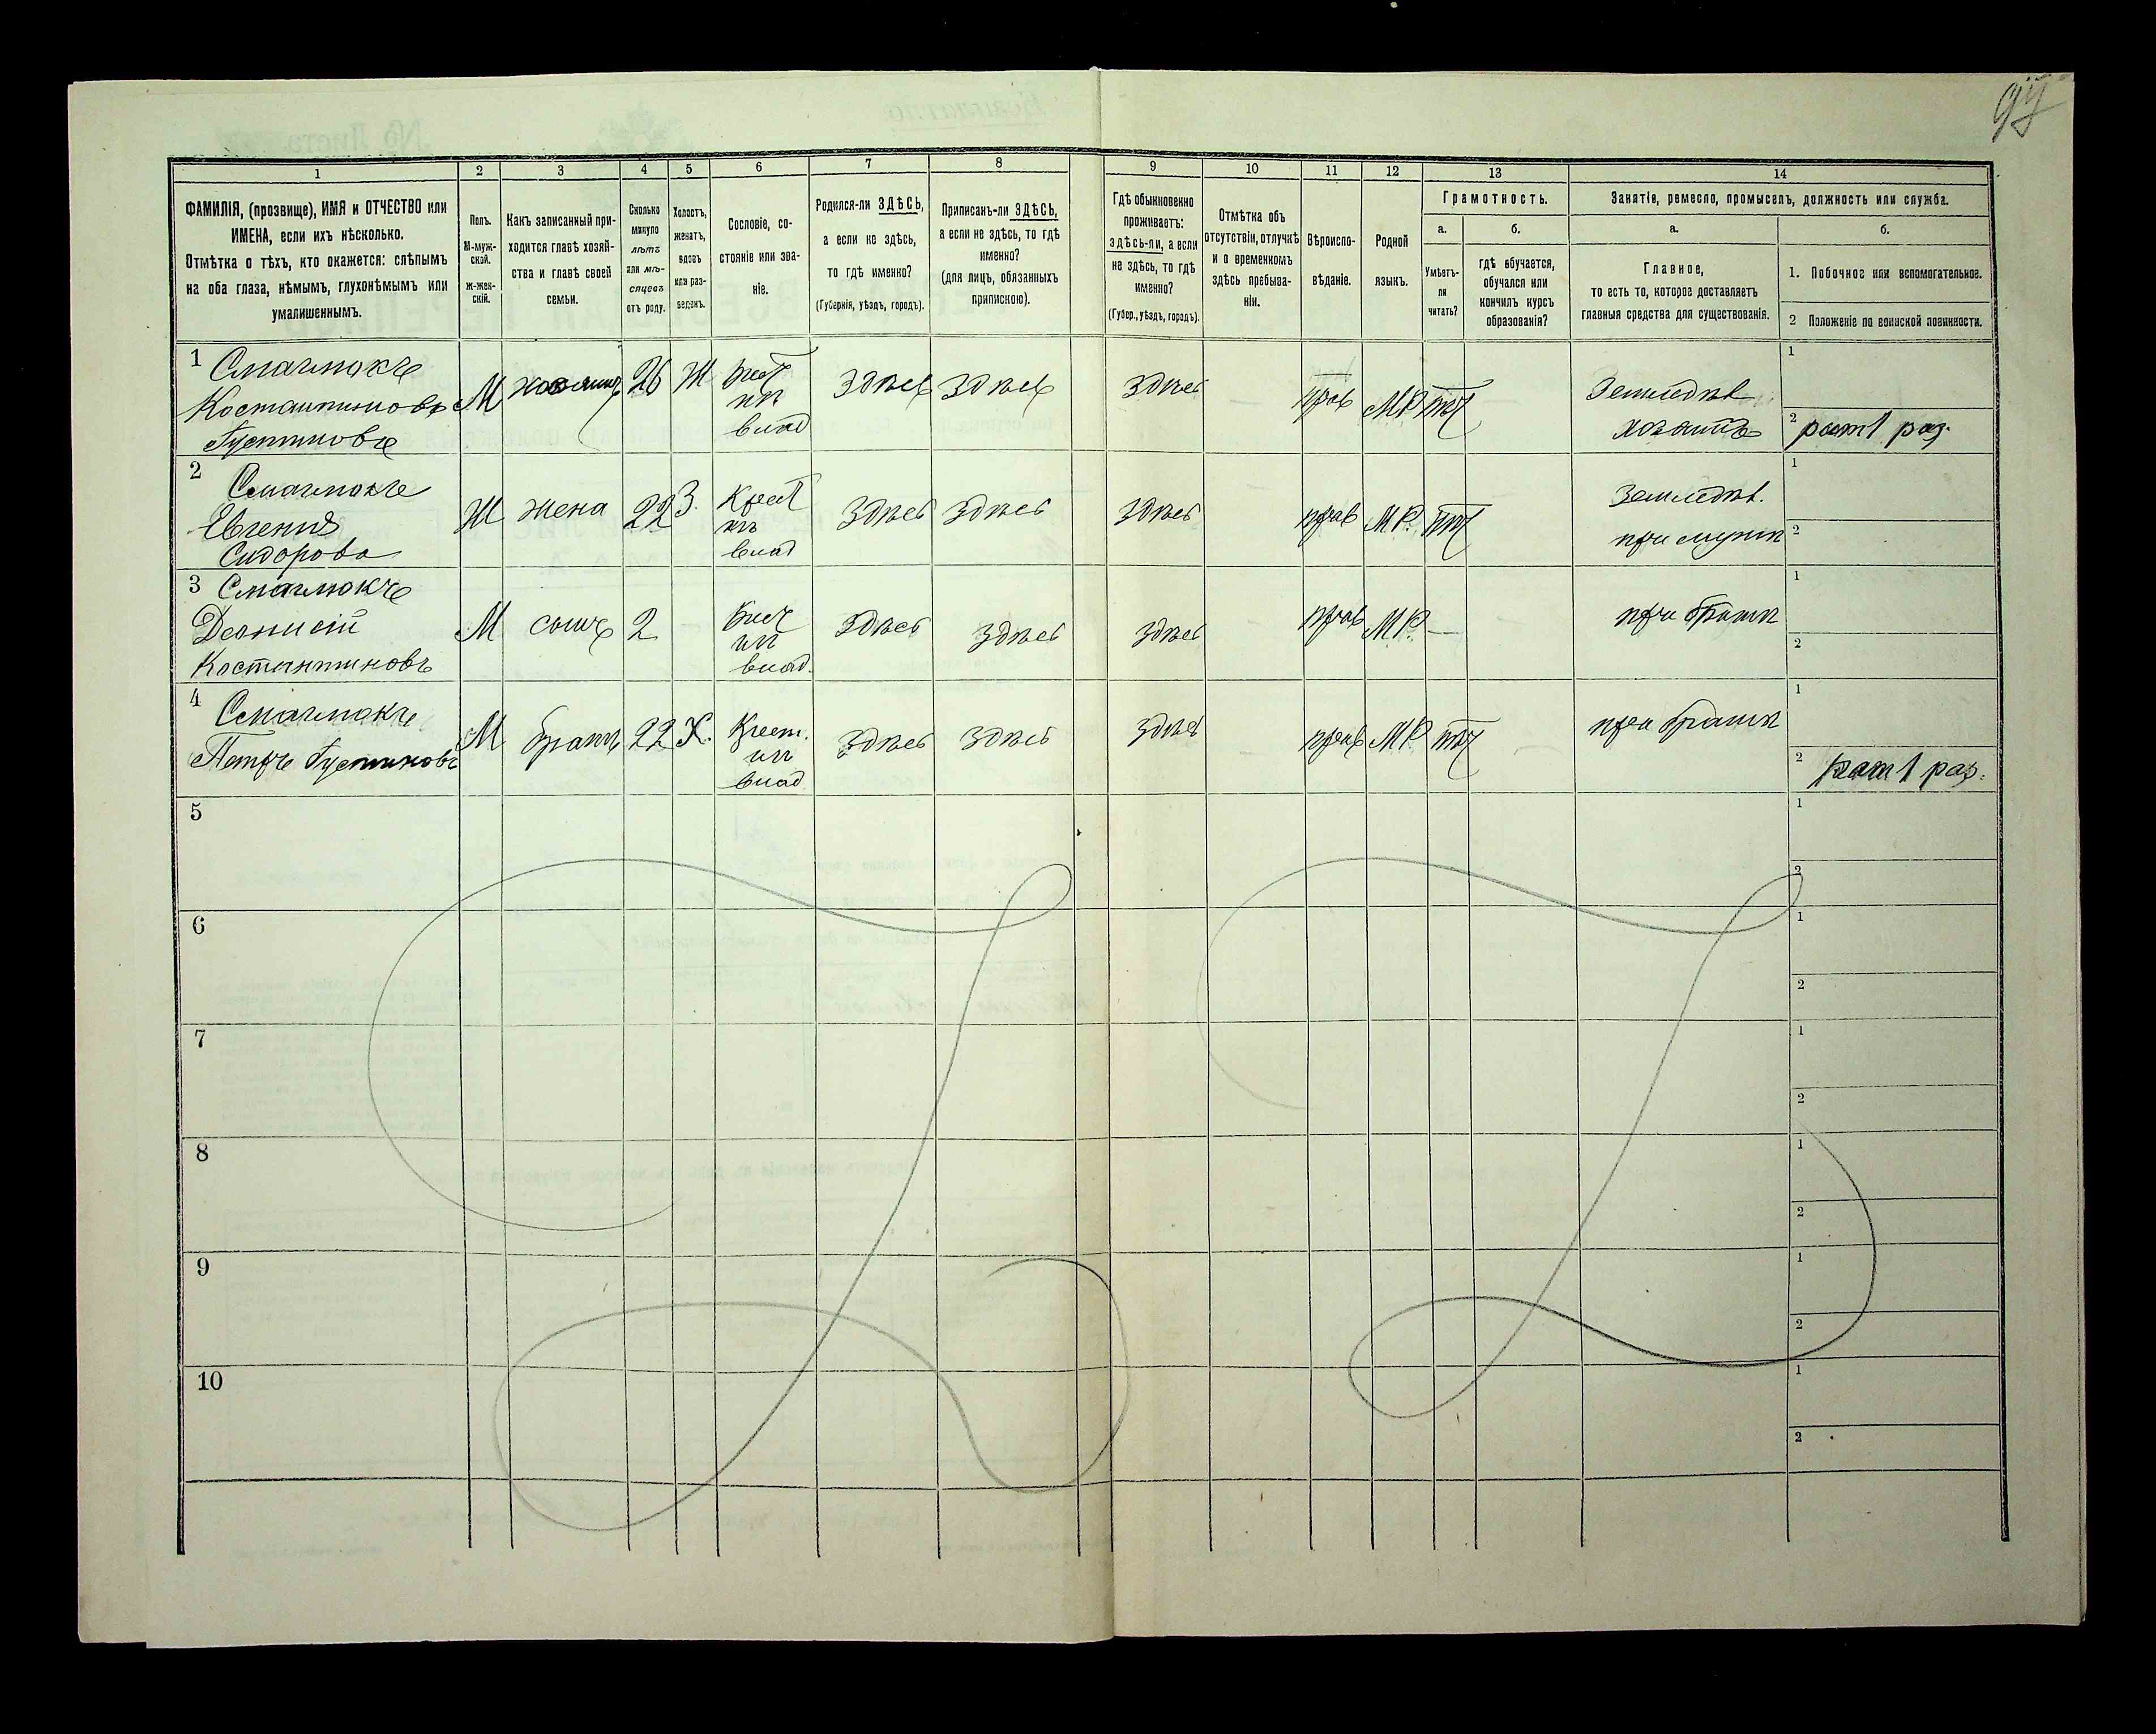 97
1
2
3
4
5
6
7
8
9
10
11
12
13
14
ФАМИЛІЯ, (прозвище), ИМЯ и ОТЧЕСТВО или
ИМЕНА, если ихъ нѣсколько.
Отмѣтка о тѣхъ, кто окажется: слѣпымъ
на оба глаза, нѣмымъ, глухонѣмымъ или
умалишеннымъ.
Полъ.
М-муж-
ской.
Ж-жен-
скій.
Какъ записанный при-
ходится главѣ хозяй-
ства и главѣ своей
семьи.
Сколько
минуло
лѣтъ
или мѣ-
сяцевъ
отъ роду.
Холостъ,
женатъ,
вдовъ
или раз-
веденъ.
Сословіе, со-
стояніе или зва-
ніе.
Родился-ли ЗДѢСЬ,
а если не здѣсь,
то гдѣ именно?
(Губернія, уѣздъ, городъ).
Приписанъ-ли ЗДѢСЬ,
а если не здѣсь, то гдѣ
именно?
(для лицъ, обязанныхъ
припискою).
Гдѣ обыкновенно
проживаетъ:
ЗДѢСЬ-ЛИ, а если
не здѣсь, то гдѣ
именно?
(Губер., уѣздъ, городъ).
Отмѣтка объ
отсутствіи, отлучкѣ
и о временномъ
здѣсь пребыва-
ніи.
Вѣроиспо-
вѣданіе.
Родной
языкъ.
Грамотность.
а.
Умѣетъ-
ли
читать?
б.
гдѣ обучается,
обучался или
кончилъ курсъ
образованія?
Занятіе, ремесло, промыселъ, должность или служба.
а.
Главное,
то есть то, которое доставляетъ
главныя средства для существованія.
б.
1. Побочное или вспомогательное.
2 Положеніе по воинской повинности.
1
Костантиновъ
Густиновъ
М хозяинъ 26 Ж
влад
здѣсь здѣсь здѣсь
прав МР нѣт
Земледѣл
хозяинъ
1
2 рат 1 раз.
2
Евгенія
Сидорова
Ж жена 22 З.
Крест
влад
здѣсь здѣсь здѣсь
прав МР. нѣт
Земледѣл.
при мужѣ
1
2
3
Деонисій
Костантиновъ
М сынъ 2
влад.
здѣсь здѣсь здѣсь
прав МР. —
при братѣ
1
2
4
Петръ Густиновъ
М братъ 22 Х.
Крест.
влад
здѣсь здѣсь здѣсь
прав МР нѣт
при братѣ
1
2 рат 1 раз.
5
1
2
6
1
2
7
1
2
8
1
2
9
1
2
10
1
2